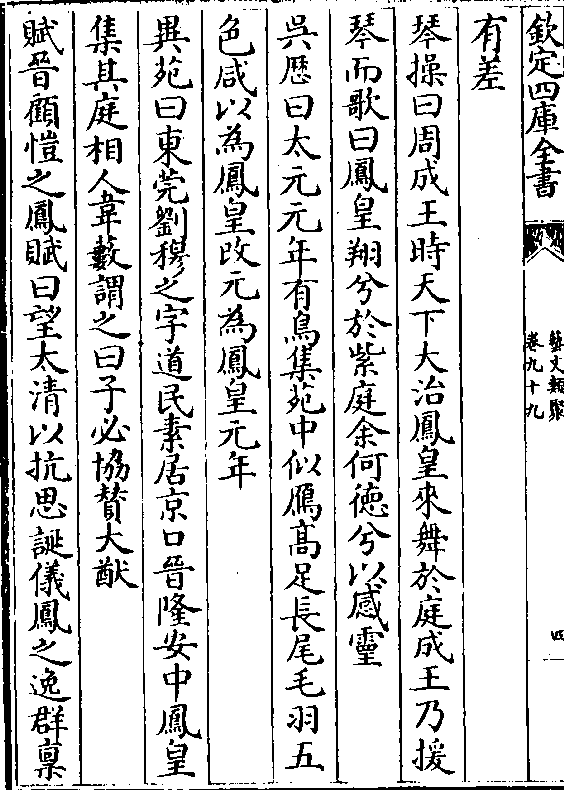 欽定四庫全書
藝文類聚
卷九十九
四
有差
琴操曰周成王時天下大治鳳皇來舞於庭成王乃援
琴而歌曰鳳皇翔兮於紫庭余何德兮以感靈
吳歴曰太元元年有鳥集苑中似鴈髙足長尾毛羽五
色咸以為鳳皇改元為鳳皇元年
異苑曰東莞劉穆之字道民素居京口晉隆安中鳳皇
集其庭相人韋藪謂之曰子必協賛大猷
賦晉顧愷之鳳賦曰望太清以抗思誕儀鳳之逸群稟